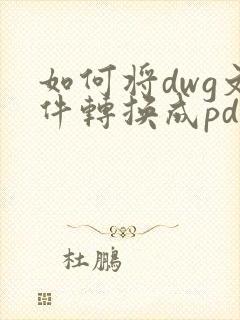 如何将dwg文
件轉換成pd
杜鵬